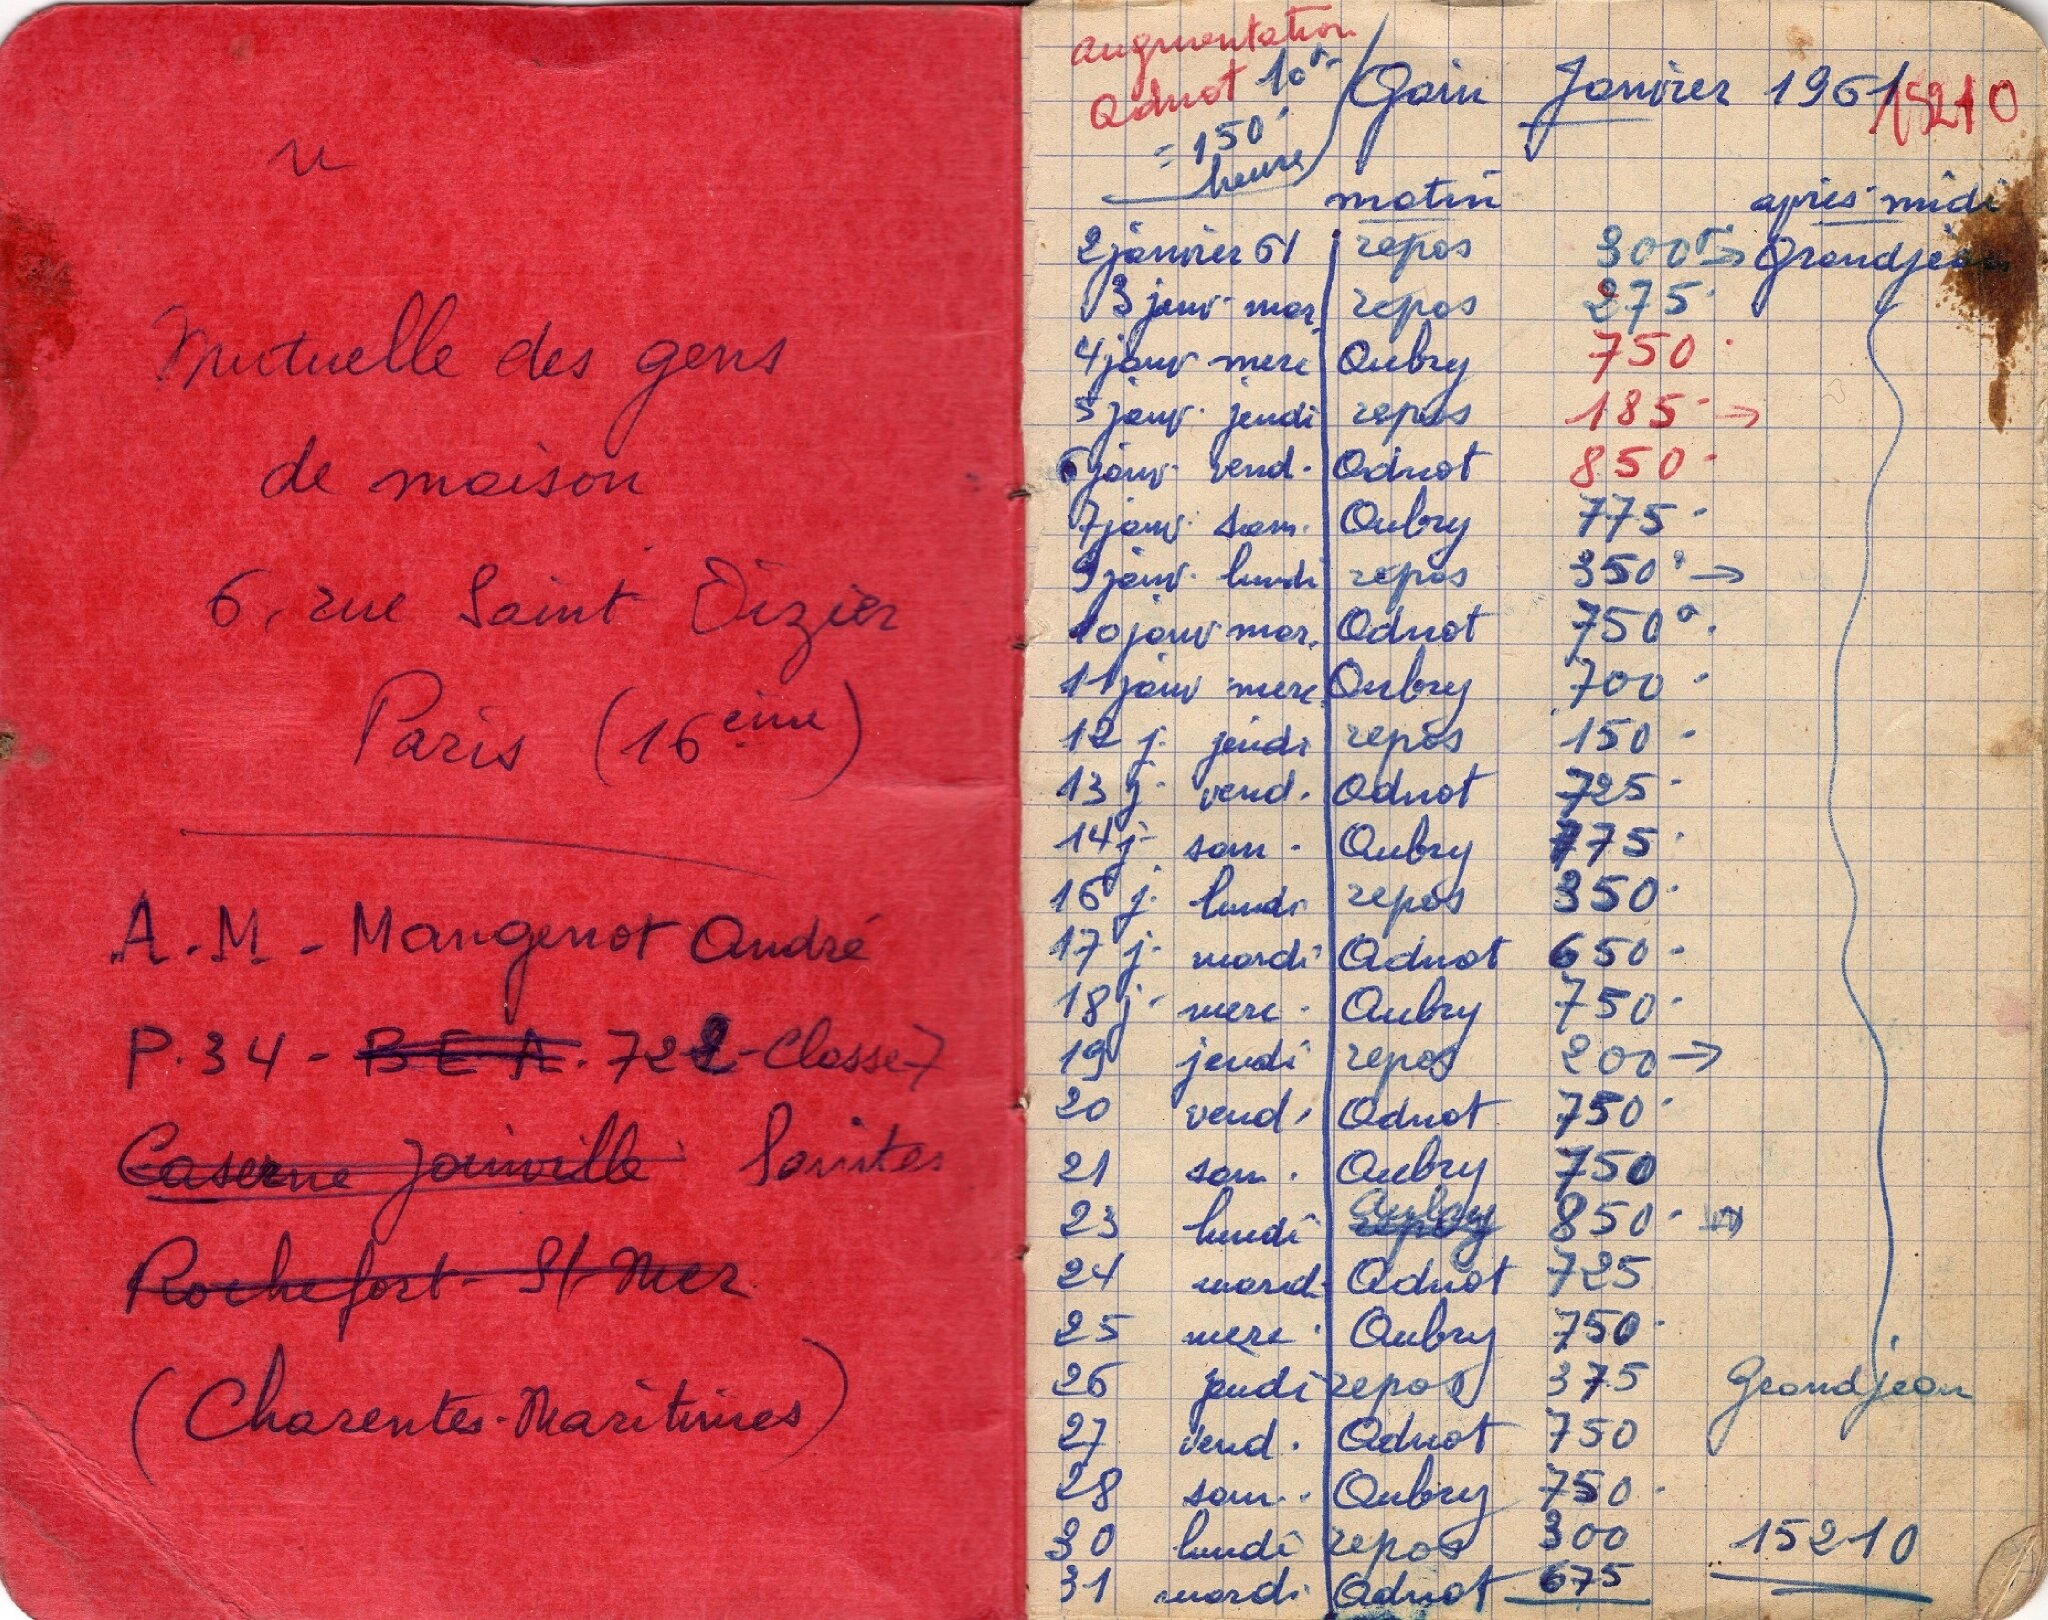 Mutuelle des gens
de maison
6, rue Saint Dizier
Paris (16ème)
A.M - Mangenot André
P.34 - B E A. 722 - Classe 7
Caserne Joinville Saintes
Rochefort - S/ Mer
(Charentes-Maritimes)
augmentation
Adnot 10f
= 150
heure
Gain Janvier 1961 15210
matin après-midi
2 janvier 61 repos 300f → Grandjean
3 janv mar. repos 275
4 janv merc Aubry 750
5 janv. jeudi repos 185 →
6 janv. vend. Adnot 850
7 janv. sam. Aubry 775
9 janv. lundi repos 350 →
10 janv mar. Adnot 750
11 janv merc Aubry 700
12 j. jeudi repos 150
13 j. vend. Adnot 725
14 j. sam. Aubry 775
16 j. lundi repos 350
17 j. mardi Adnot 650
18 j. merc. Aubry 750
19 jeudi repos 200 →
20 vend. Adnot 750
21 sam. Aubry 750
23 lundi Aubry 850
24 mardi Adnot 725
25 merc. Aubry 750
26 jeudi repos 375 Grandjean
27 vend. Adnot 750
28 sam. Aubry 750
30 lundi repos 300 15210
31 mardi Adnot 675